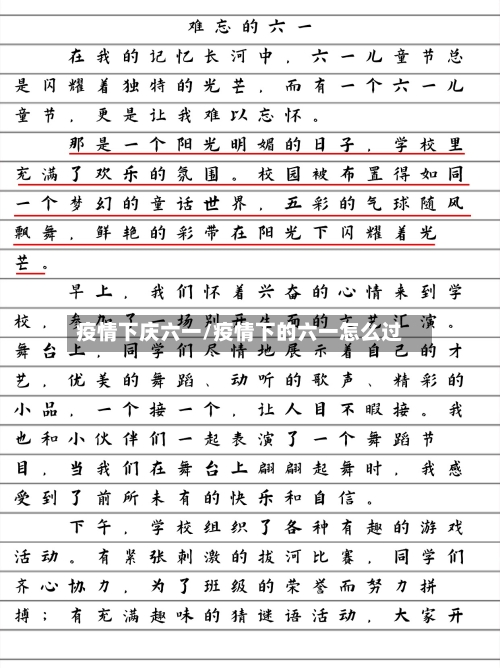 难忘的六一
在我的记忆长河中，六一儿童节总
是闪耀着独特的光芒，而有一个六一儿
童节，更是让我难以忘怀。
那是一个阳光明媚的日子，学校里
充满了欢乐的氛围。校园被布置得如同
一个梦幻的童话世界，五彩的气球随风
飘舞，鲜艳的彩带在阳光下闪耀着光
芒。
早上，我们怀着兴奋的心情来到学
校，参加了一场别开生面的文艺汇演。
疫情下庆六一/疫情下的六一怎么过
舞台上，同学们尽情地展示着自己的才
艺，优美的舞蹈、动听的歌声、精彩的
小品，一个接一个，让人目不暇接。我
也和小伙伴们一起表演了一个舞蹈节
目，当我们在舞台上翩翩起舞时，我感
受到了前所未有的快乐和自信。
下午，学校组织了各种有趣的游戏
活动。有紧张刺激的拔河比赛，同学们
齐心协力，为了班级的荣誉而努力拼
搏；有充满趣味的猜谜语活动，大家开